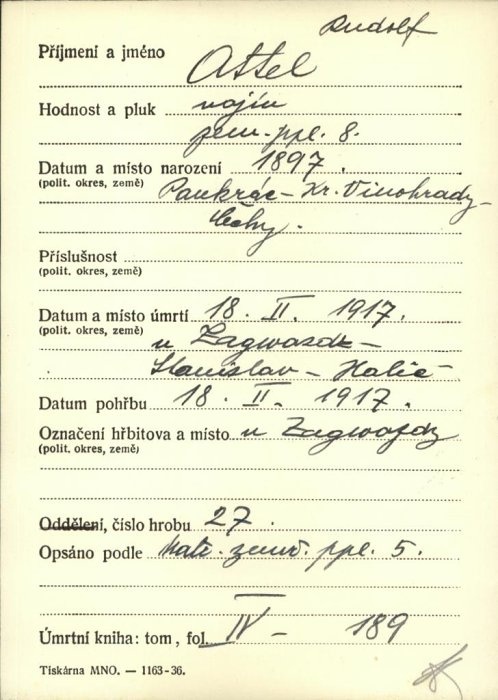 Rudolf
Příjmení a jméno Attel
Hodnost a pluk vojín
zem. ppl. 8.
Datum a místo narození 1897.
(polit. okres, země) Pankrác - Kr. Vinohrady -
Čechy.
Příslušnost
(polit. okres, země)
Datum a místo úmrtí 18. II. 1917.
(polit. okres, země) u Zagwozdz -
Stanislav - Halič
Datum pohřbu 18. II. 1917.
Označení hřbitova a místo u Zagwozdz
(polit. okres, země)
Oddělení, číslo hrobu 27.
Opsáno podle Matr. zemř. ppl. 5.
Úmrtní kniha: tom, fol. IV - 189
Tiskárna MNO. — 1163-36.